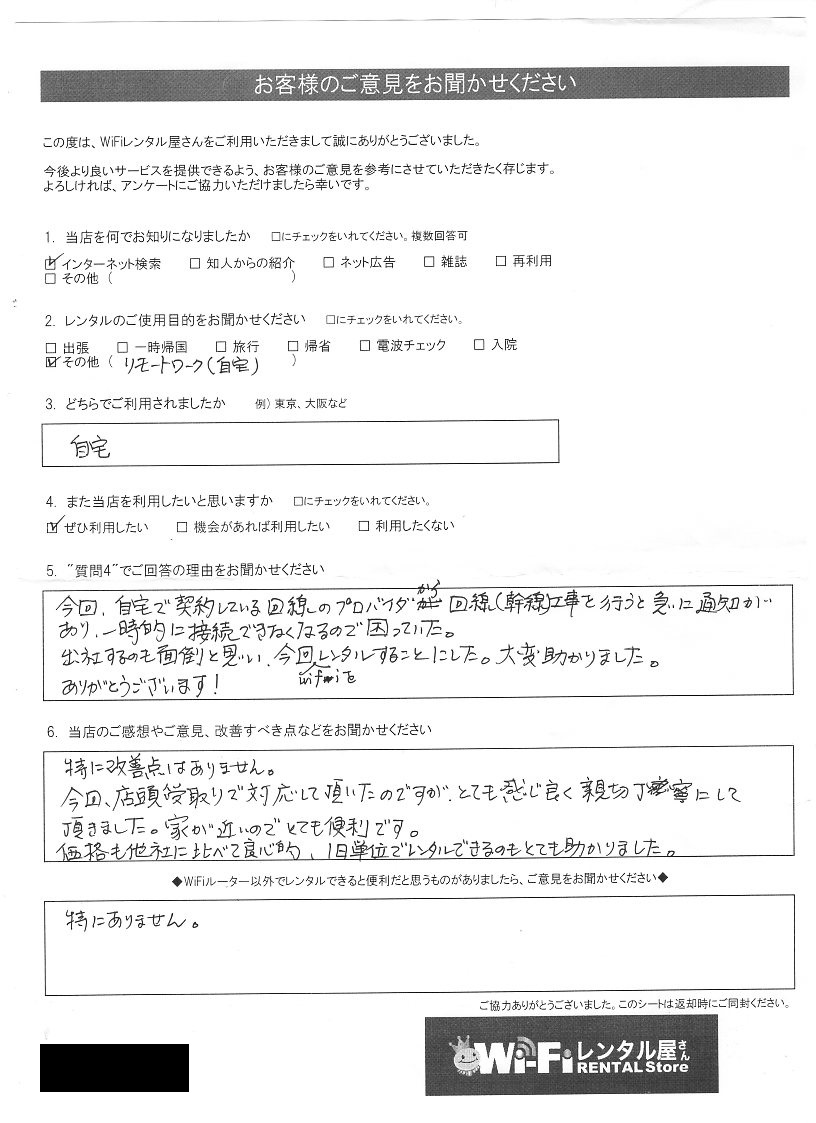 お客様のご意見をお聞かせください
この度は、WiFiレンタル屋さんをご利用いただきまして誠にありがとうございました。
今後より良いサービスを提供できるよう、お客様のご意見を参考にさせていただきたく存じます。
よろしければ、アンケートにご協力いただけましたら幸いです。
1. 当店を何でお知りになりましたか　□にチェックをいれてください。複数回答可
☑ インターネット検索　□ 知人からの紹介　□ ネット広告　□ 雑誌　□ 再利用
□ その他（　　　　　　　　　　）
2. レンタルのご使用目的をお聞かせください　□にチェックをいれてください。
□ 出張　□ 一時帰国　□ 旅行　□ 帰省　□ 電波チェック　□ 入院
☑ その他（ リモートワーク(自宅)　）
3. どちらでご利用されましたか　例）東京、大阪など
自宅
4. また当店を利用したいと思いますか　□にチェックをいれてください。
☑ ぜひ利用したい　□ 機会があれば利用したい　□ 利用したくない
5. “質問4”でご回答の理由をお聞かせください
今回、自宅で契約している回線のプロバイダから回線(幹線)工事を行うと急に通知が
あり、一時的に接続できなくなるので困っていた。
出社するのも面倒と思い、今回wifiをレンタルすることにした。大変助かりました。
ありがとうございます！
6. 当店のご感想やご意見、改善すべき点などをお聞かせください
特に改善点はありません。
今回、店頭受取りで対応して頂いたのですが、とても感じ良く親切丁寧にして
頂きました。家が近いのでとても便利です。
価格も他社に比べて良心的、1日単位でレンタルできるのもとても助かりました。
◆WiFiルーター以外でレンタルできると便利だと思うものがありましたら、ご意見をお聞かせください◆
特にありません。
ご協力ありがとうございました。このシートは返却時にご同封ください。
Wi-Fiレンタル屋さん
RENTAL Store